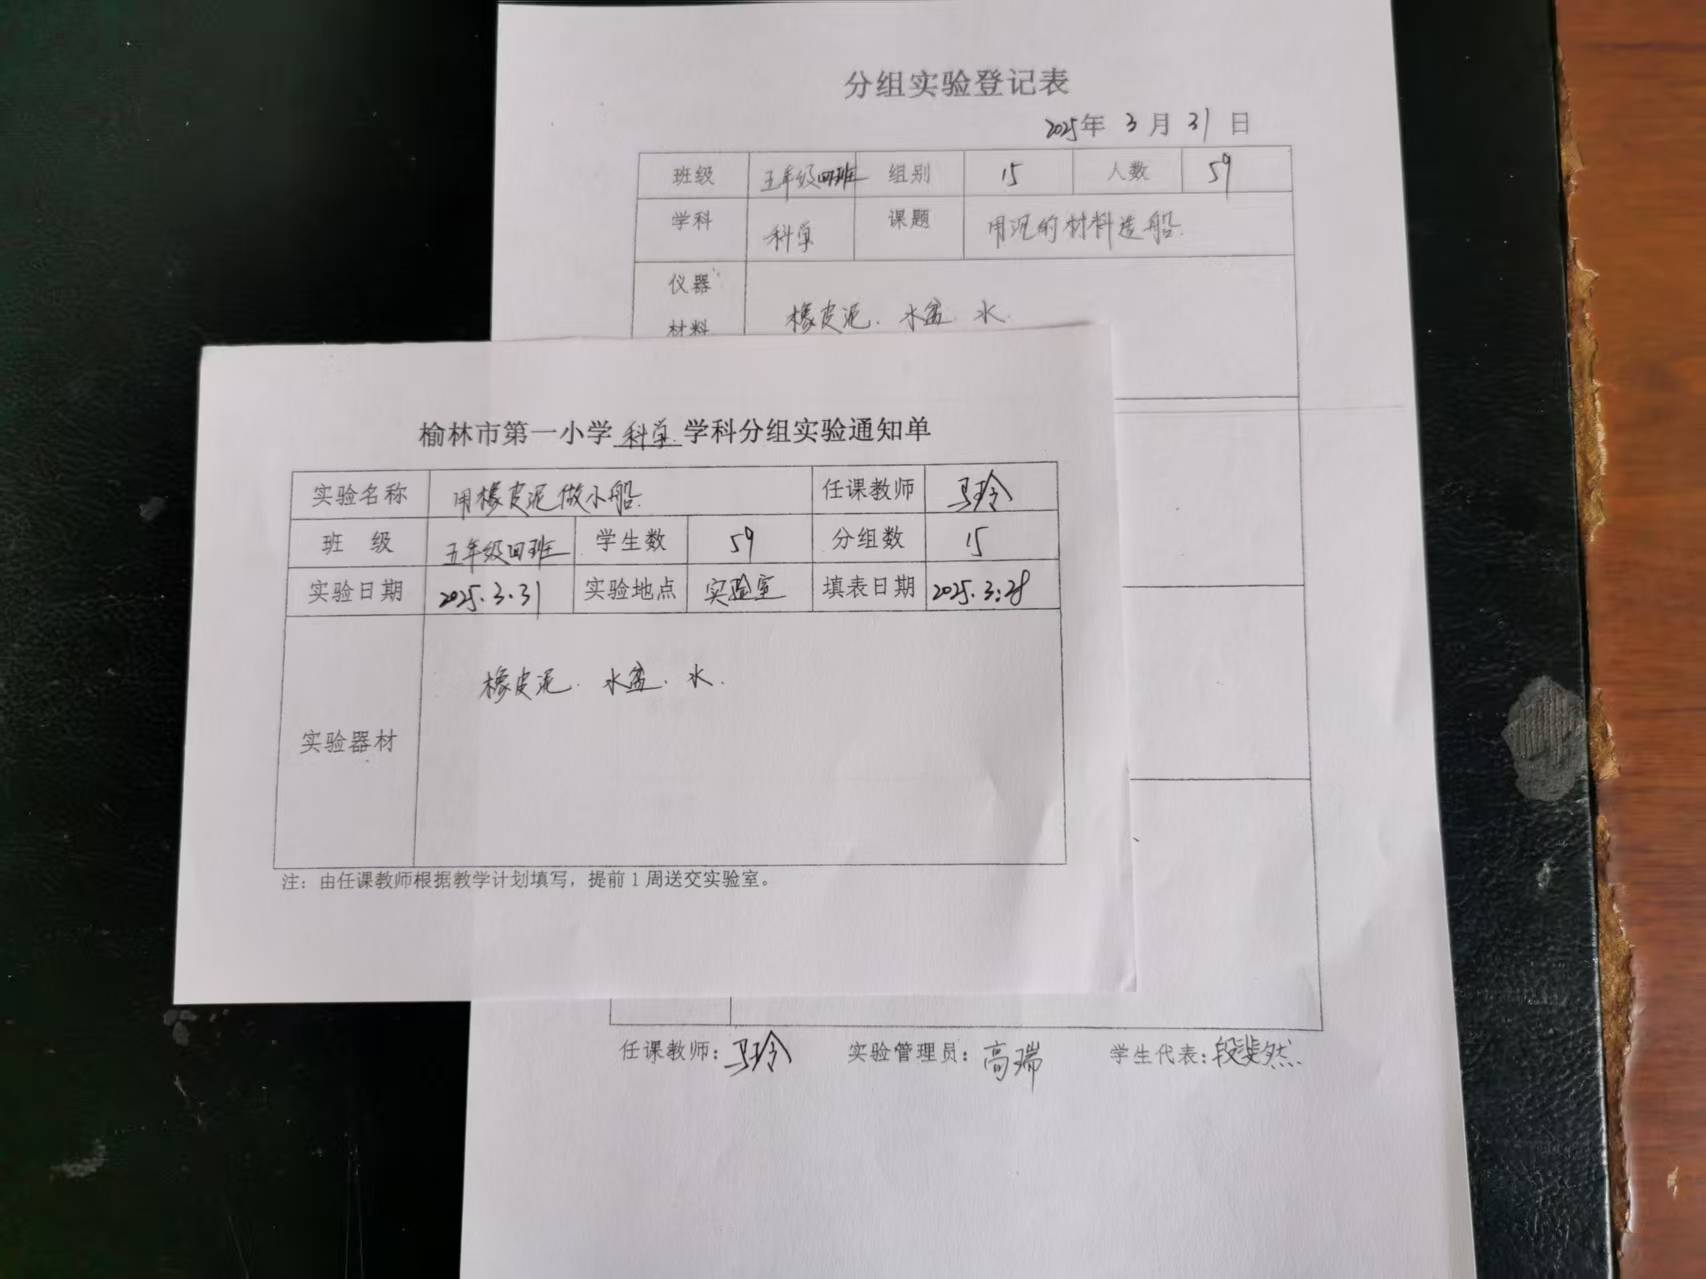 分组实验登记表
2025年 3 月 31 日
班级 五年级四班 组别 15 人数 59
学科 科学 课题 用沉的材料造船.
仪器
材料 橡皮泥. 水盆. 水.
榆林市第一小学 科学 学科分组实验通知单
实验名称 用橡皮泥做小船. 任课教师 马玲
班 级 五年级四班 学生数 59 分组数 15
实验日期 2025.3.31 实验地点 实验室 填表日期 2025.3.28
实验器材 橡皮泥. 水盆. 水.
注：由任课教师根据教学计划填写，提前1周送交实验室。
任课教师：马玲 实验管理员：高瑞 学生代表：段斐然.